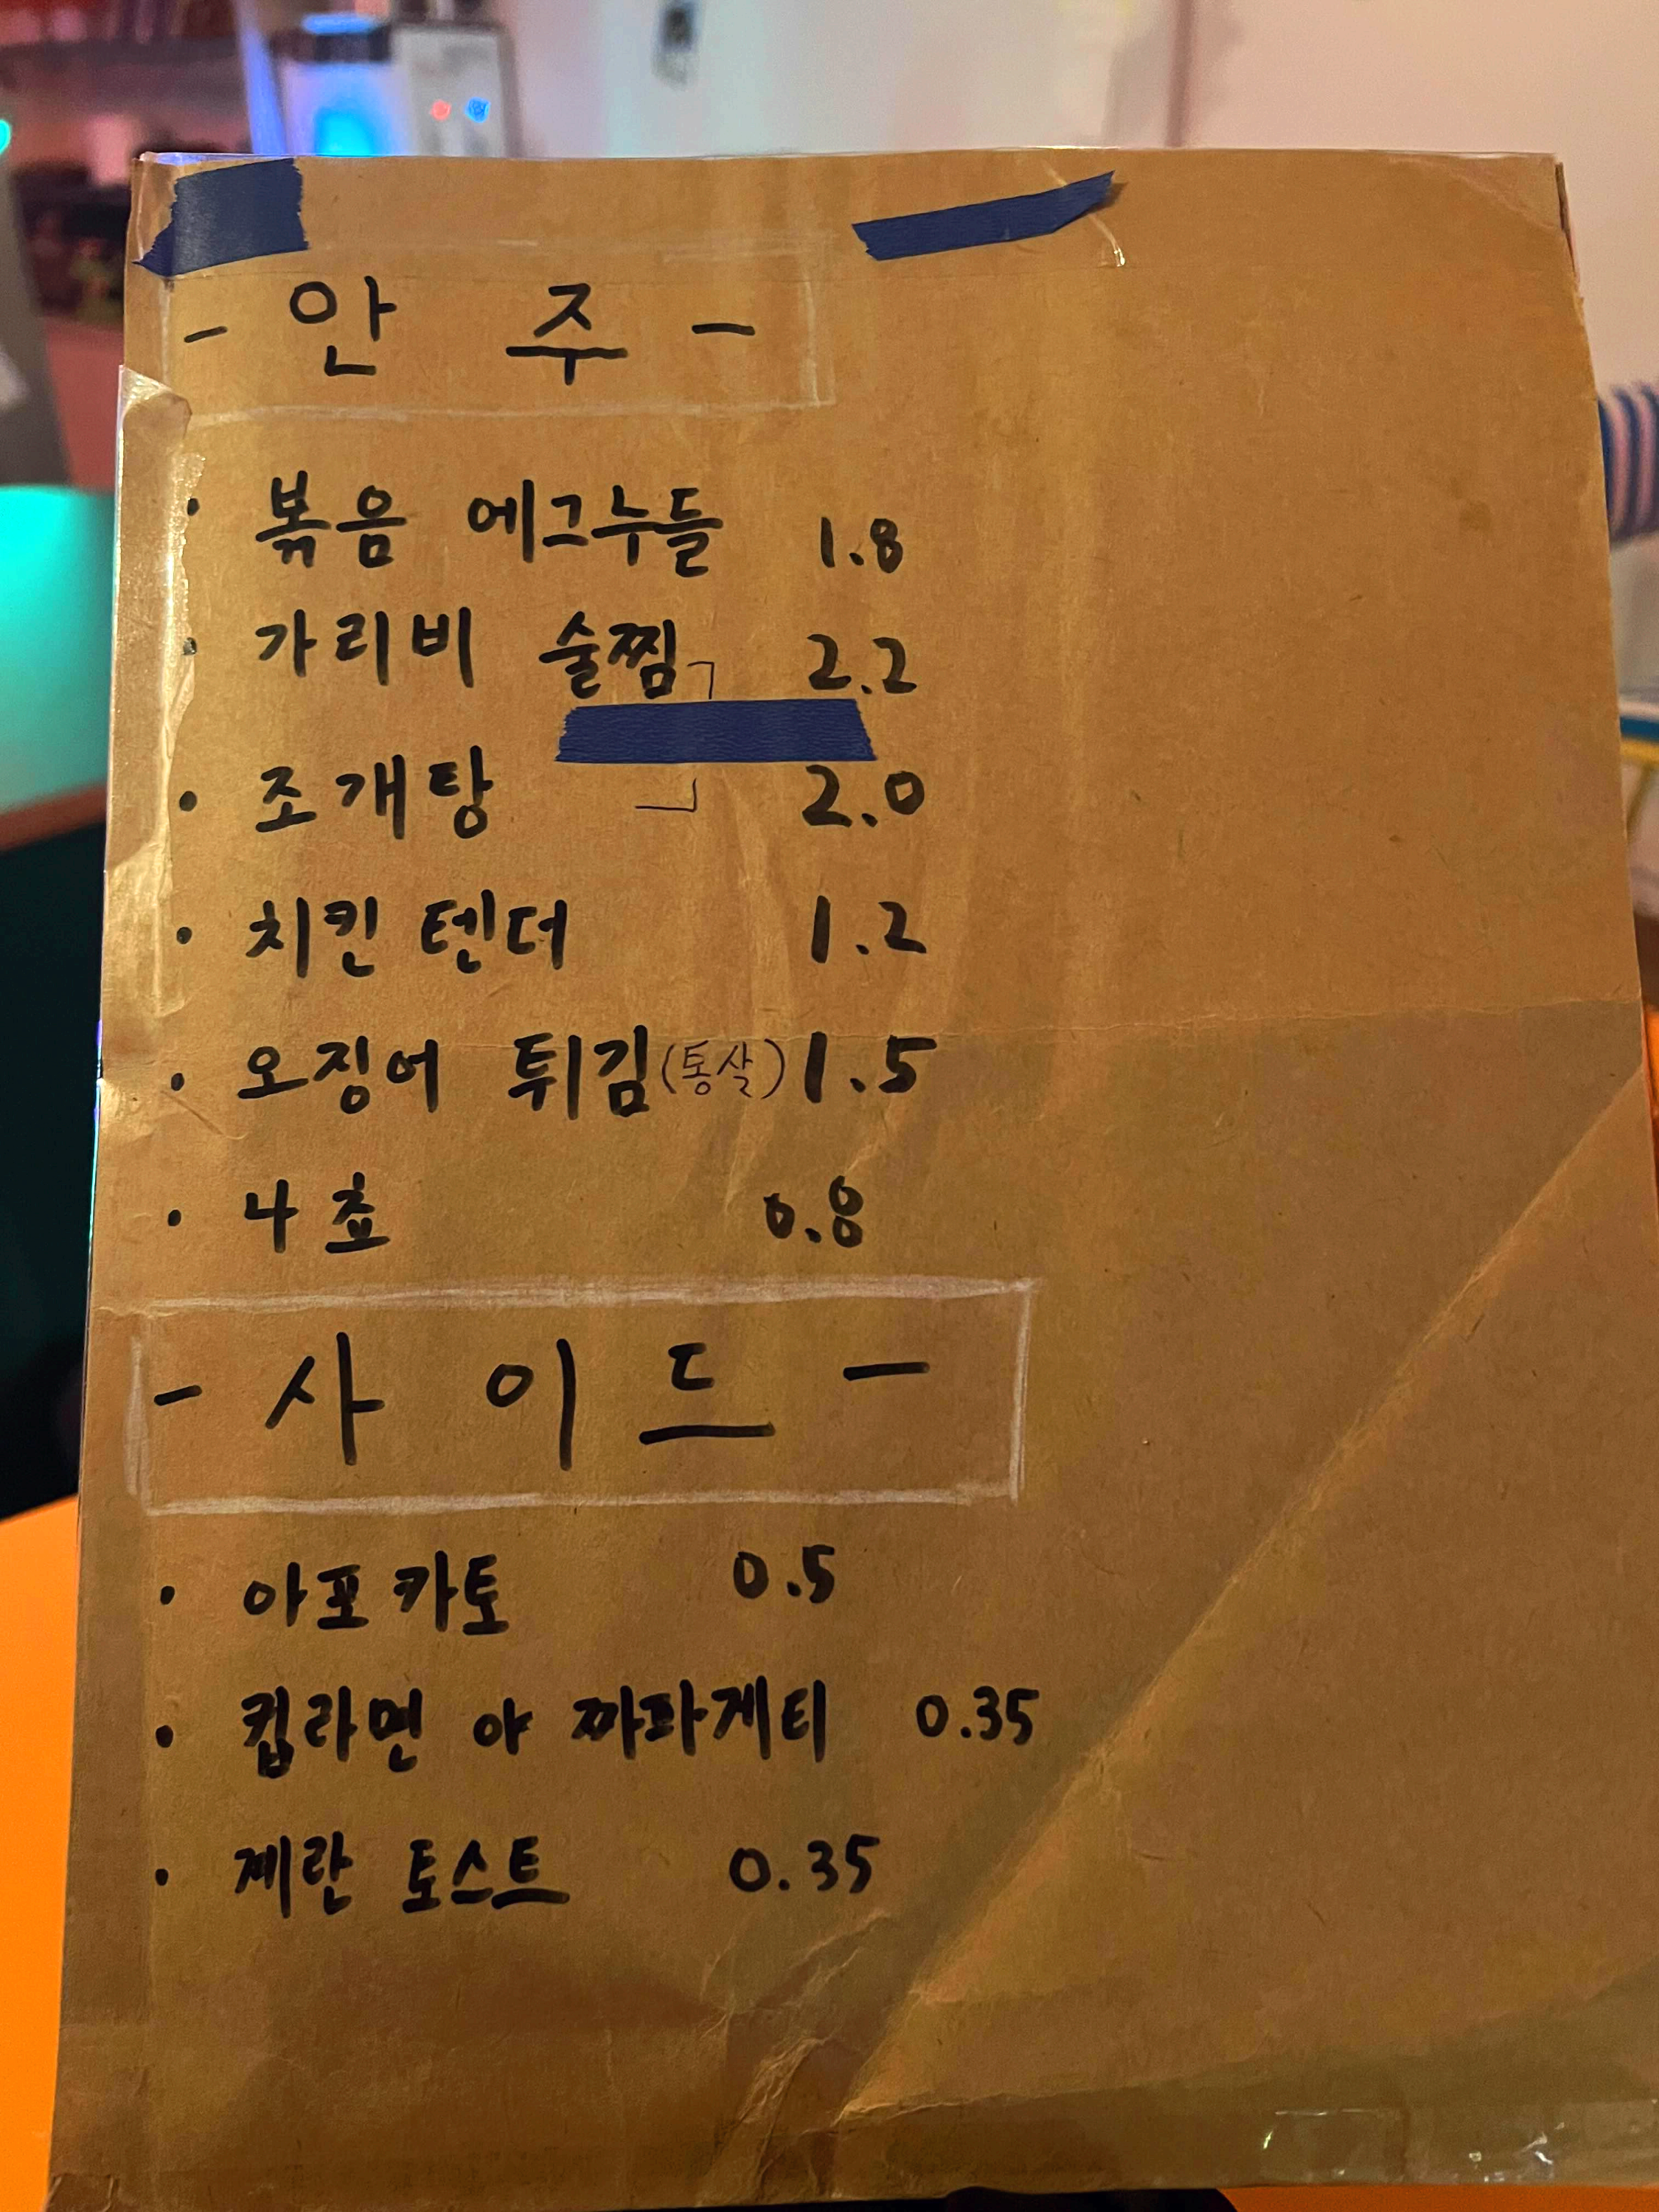 - 안 주 -
· 볶음 에그누들 1.8
· 가리비 술찜 2.2
· 조개탕 2.0
· 치킨 텐더 1.2
· 오징어 튀김(통살) 1.5
· 나쵸 0.8
- 사 이 드 -
· 아포카토 0.5
· 컵라면 or 짜파게티 0.35
· 계란 토스트 0.35